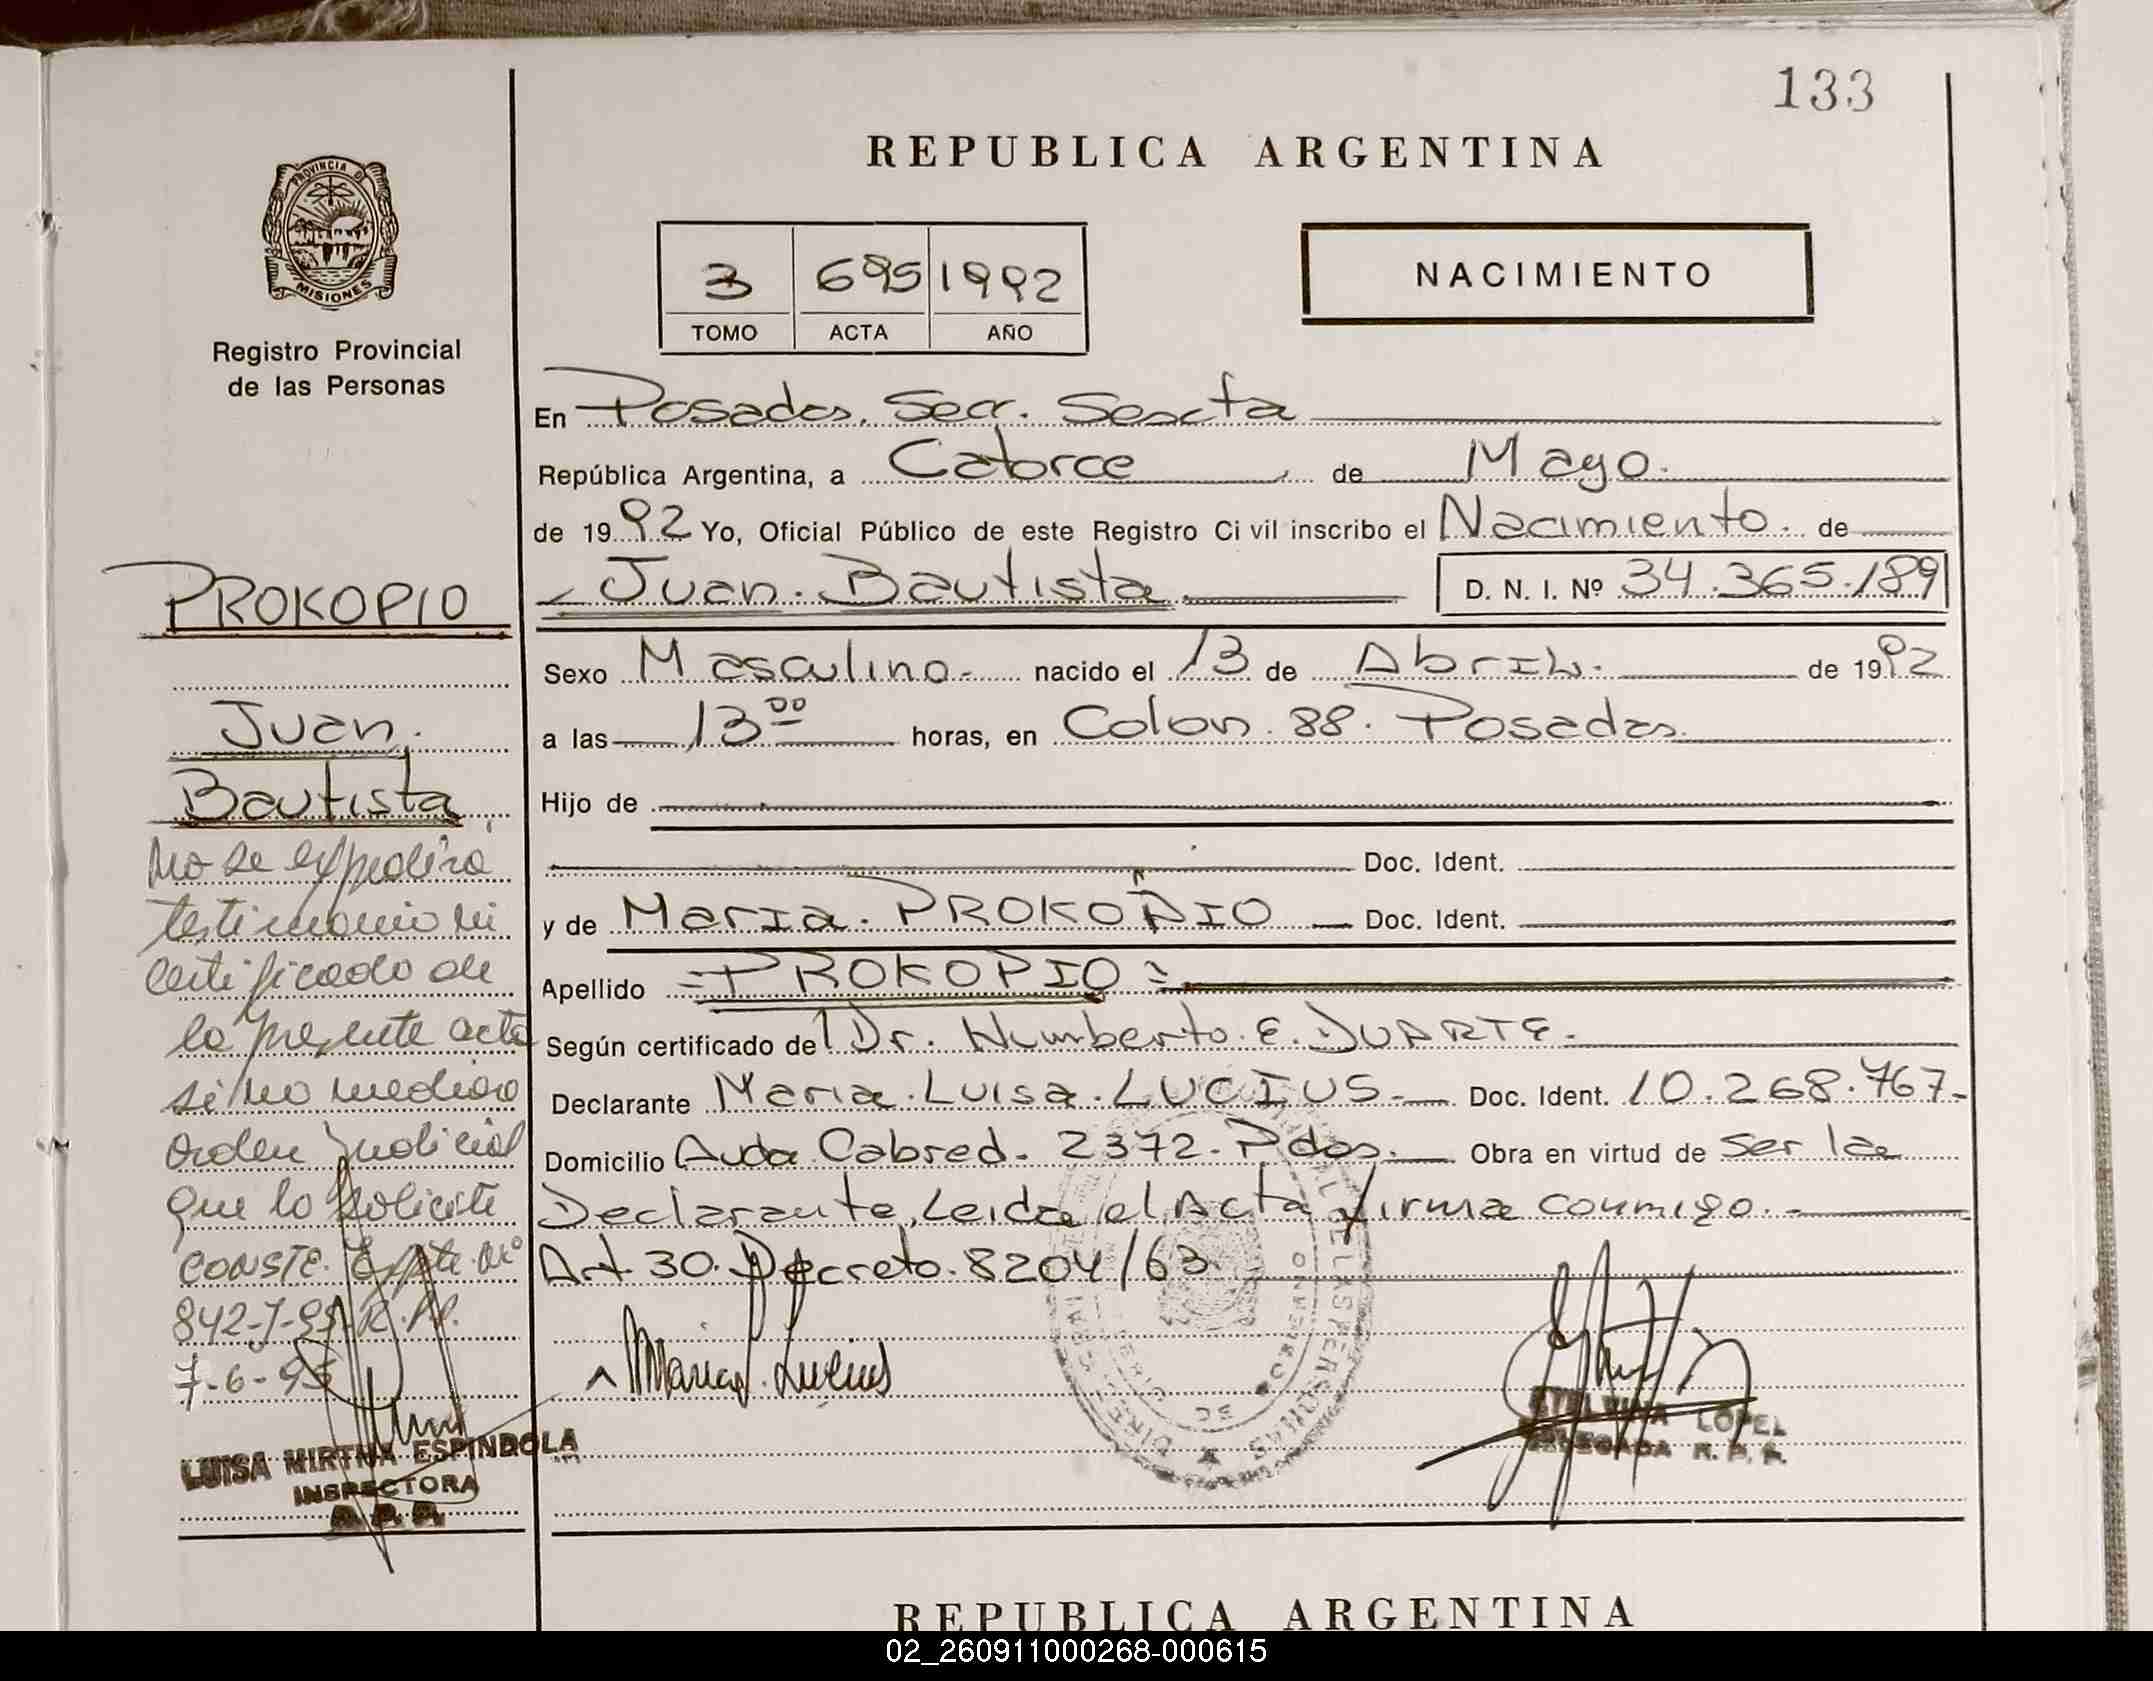 133
REPUBLICA ARGENTINA
PROVINCIA DE
MISIONES
Registro Provincial
de las Personas
3 695 1992
TOMO ACTA AÑO
NACIMIENTO
En Posadas. Secc. Sexta
República Argentina, a Catorce de Mayo.
de 1992 Yo, Oficial Público de este Registro Civil inscribo el Nacimiento. de
Juan. Bautista D. N. I. Nº 34.365.189
Sexo Masculino. nacido el 13 de Abril. de 1992
a las 13 00 horas, en Colon. 88. Posadas.
Hijo de
Doc. Ident.
y de Maria. PROKOPIO Doc. Ident.
Apellido =PROKOPIO=
Según certificado del Dr. Humberto. E. DUARTE.
Declarante Maria. Luisa. LUCIUS. Doc. Ident. 10.268.767-
Domicilio Avda Cabred. 2372. Pdas. Obra en virtud de ser la
Declarante, Leida el Acta firma conmigo.
Art 30. Decreto. 8204/63.
Maria L. Lucius
LOPEZ
DELEGADA R. P. P.
PROKOPIO
Juan.
Bautista
No se expedirá
testimonio ni
certificado de
la presente acta
si no media
Orden Judicial
que lo solicite
CONSTE. Expte. Nº
842-J-95 R.P.P.
7-6-95
LUISA MIRTHA ESPINDOLA
INSPECTORA
R. P. P.
REPUBLICA ARGENTINA
02_260911000268-000615